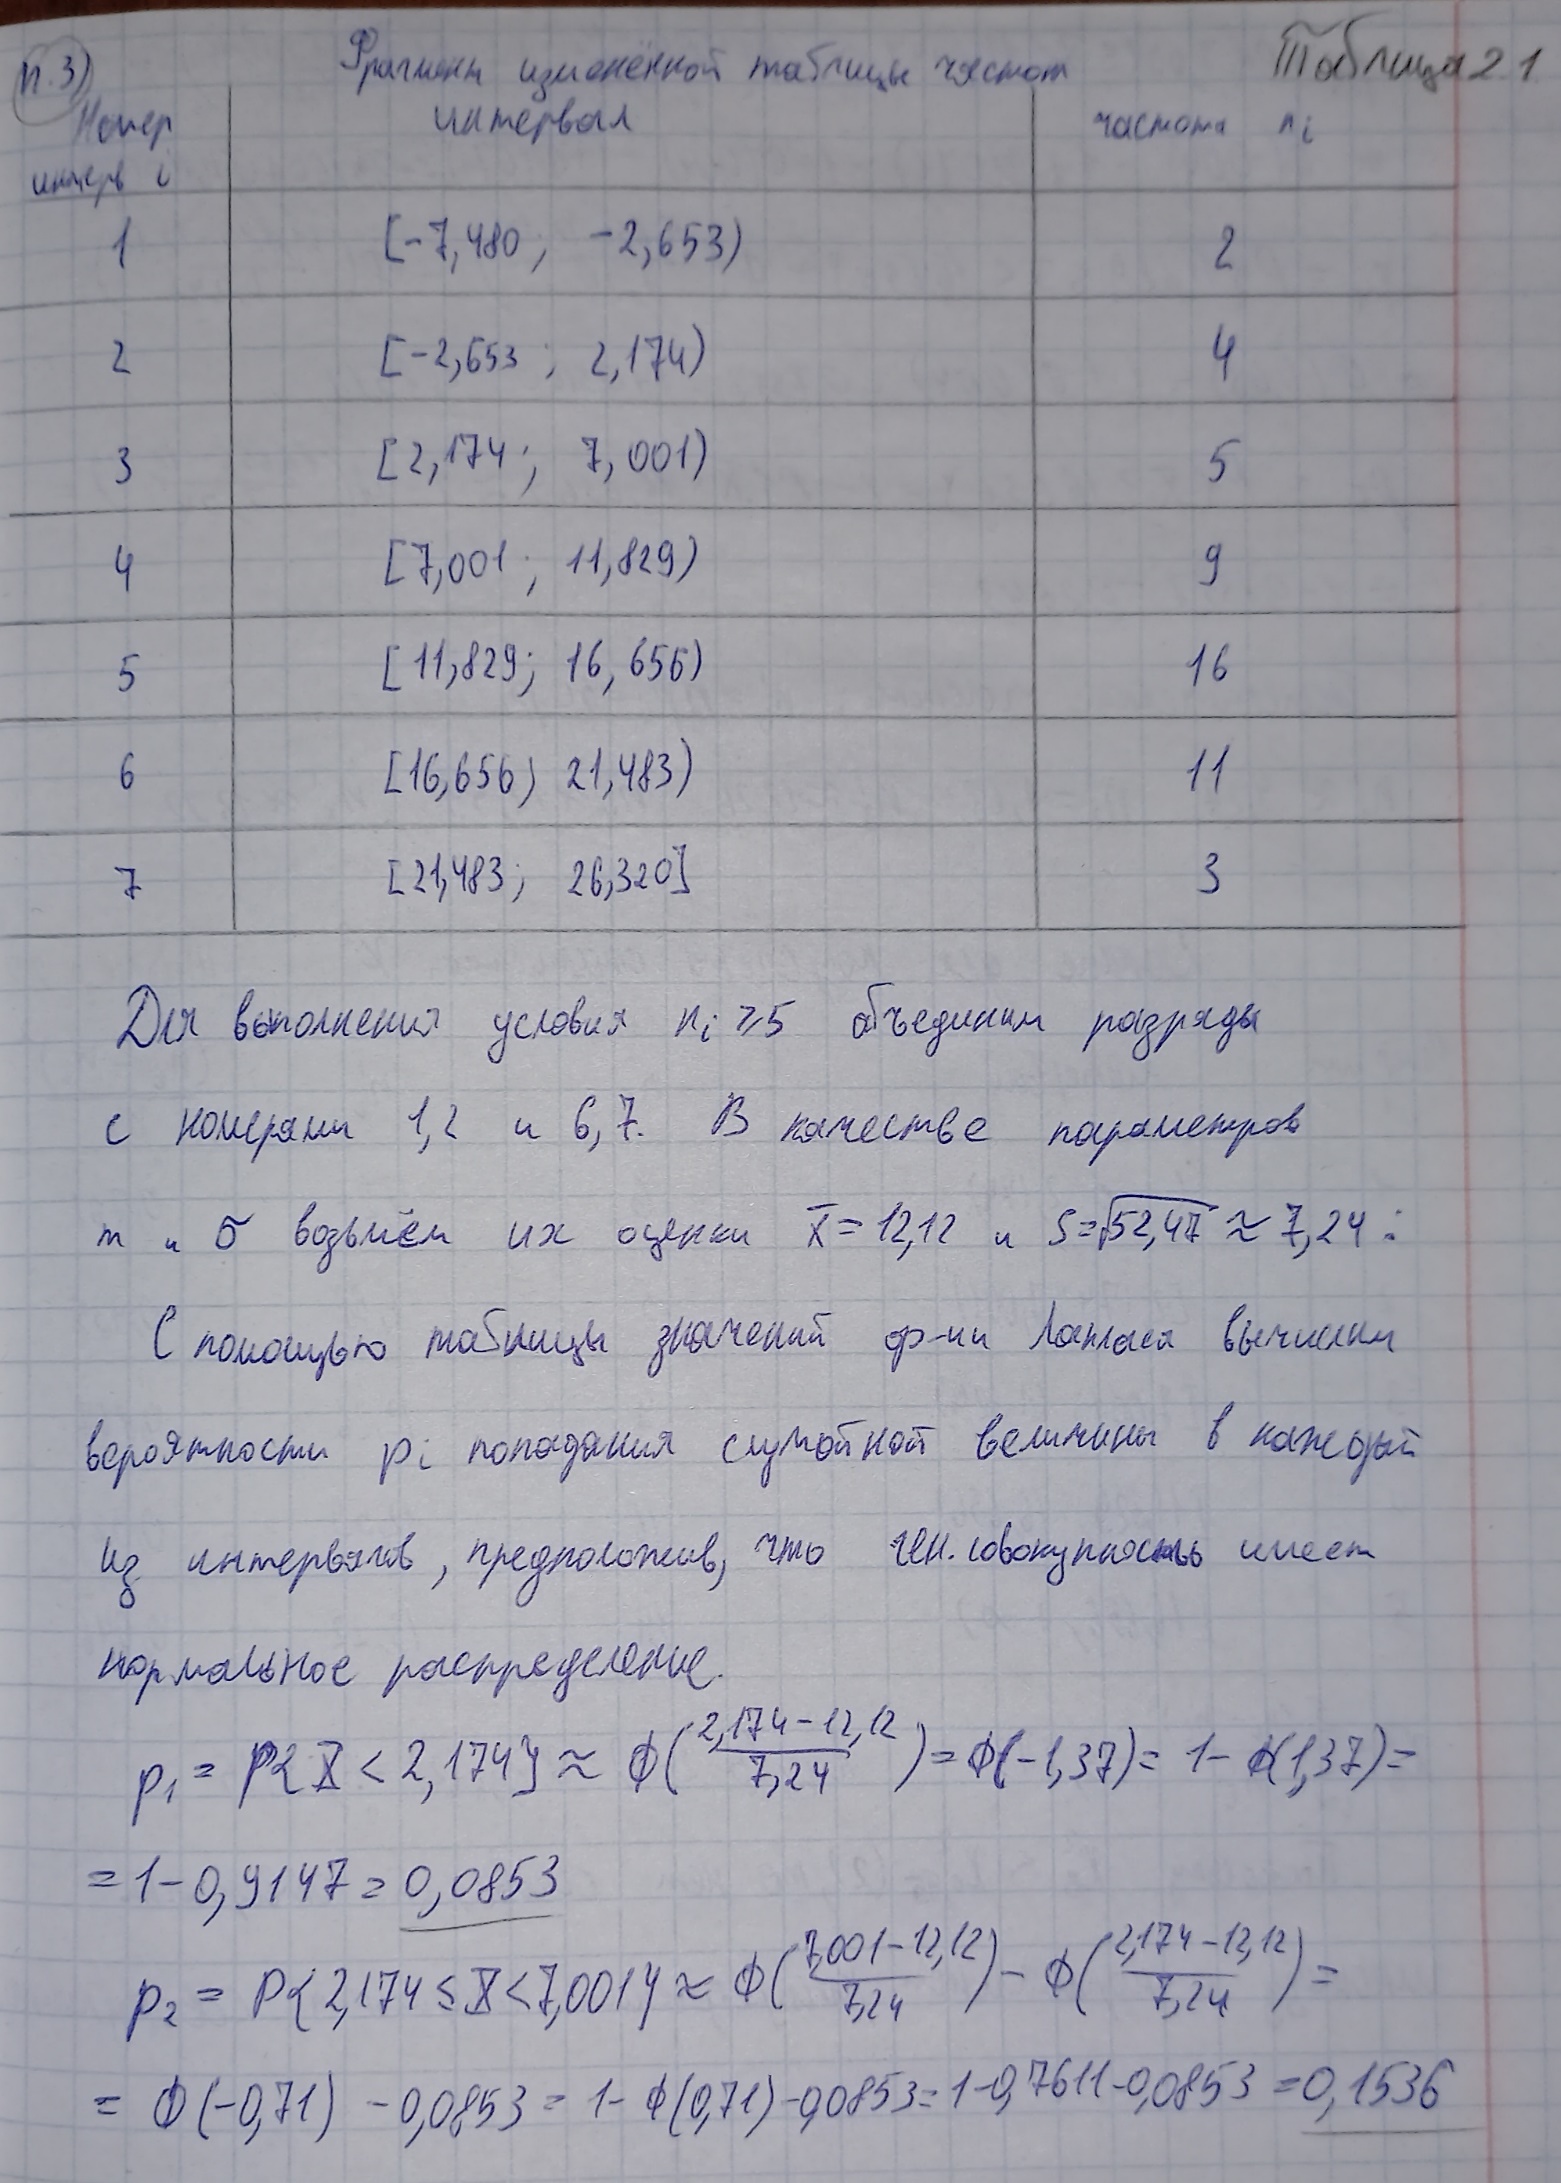 п.3) Фрагмент изменённой таблицы частот Таблица 2.1
Номер интерв i интервал частота ni
1 [-7,480; -2,653) 2
2 [-2,653; 2,174) 4
3 [2,174; 7,001) 5
4 [7,001; 11,829) 9
5 [11,829; 16,656) 16
6 [16,656; 21,483) 11
7 [21,483; 26,320] 3
Для выполнения условия ni ≥ 5 объединим разряды
с номерами 1,2 и 6,7. В качестве параметров
m и σ возьмём их оценки x̅ = 12,12 и S=√52,47 ≈ 7,24:
С помощью таблицы значений ф-ии Лапласа вычислим
вероятности pi попадания случайной величины в каждый
из интервалов, предположив, что ген. совокупность имеет
нормальное распределение.
p₁ = P{X < 2,174} ≈ Ф((2,174-12,12)/7,24) = Ф(-1,37) = 1- Ф(1,37) =
= 1-0,9147 = 0,0853
p₂ = P{2,174 ≤ X < 7,001} ≈ Ф((7,001-12,12)/7,24) - Ф((2,174-12,12)/7,24) =
= Ф(-0,71) -0,0853 = 1- Ф(0,71) -0,0853 = 1-0,7611-0,0853 = 0,1536